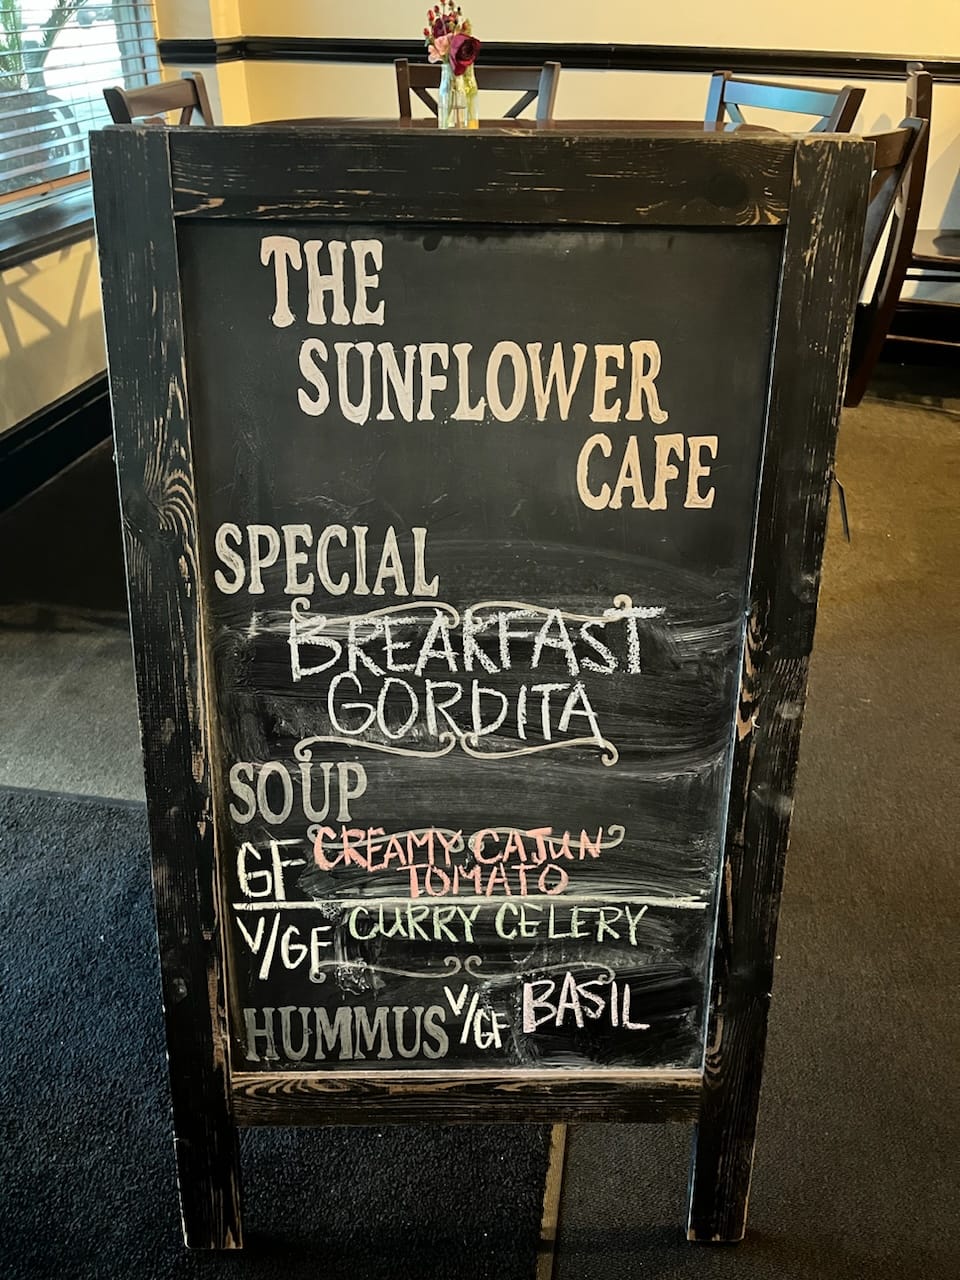 THE
SUNFLOWER
CAFE
SPECIAL
BREAKFAST
GORDITA
SOUP
GF CREAMY CAJUN
TOMATO
V/GF CURRY CELERY
HUMMUS V/GF BASIL